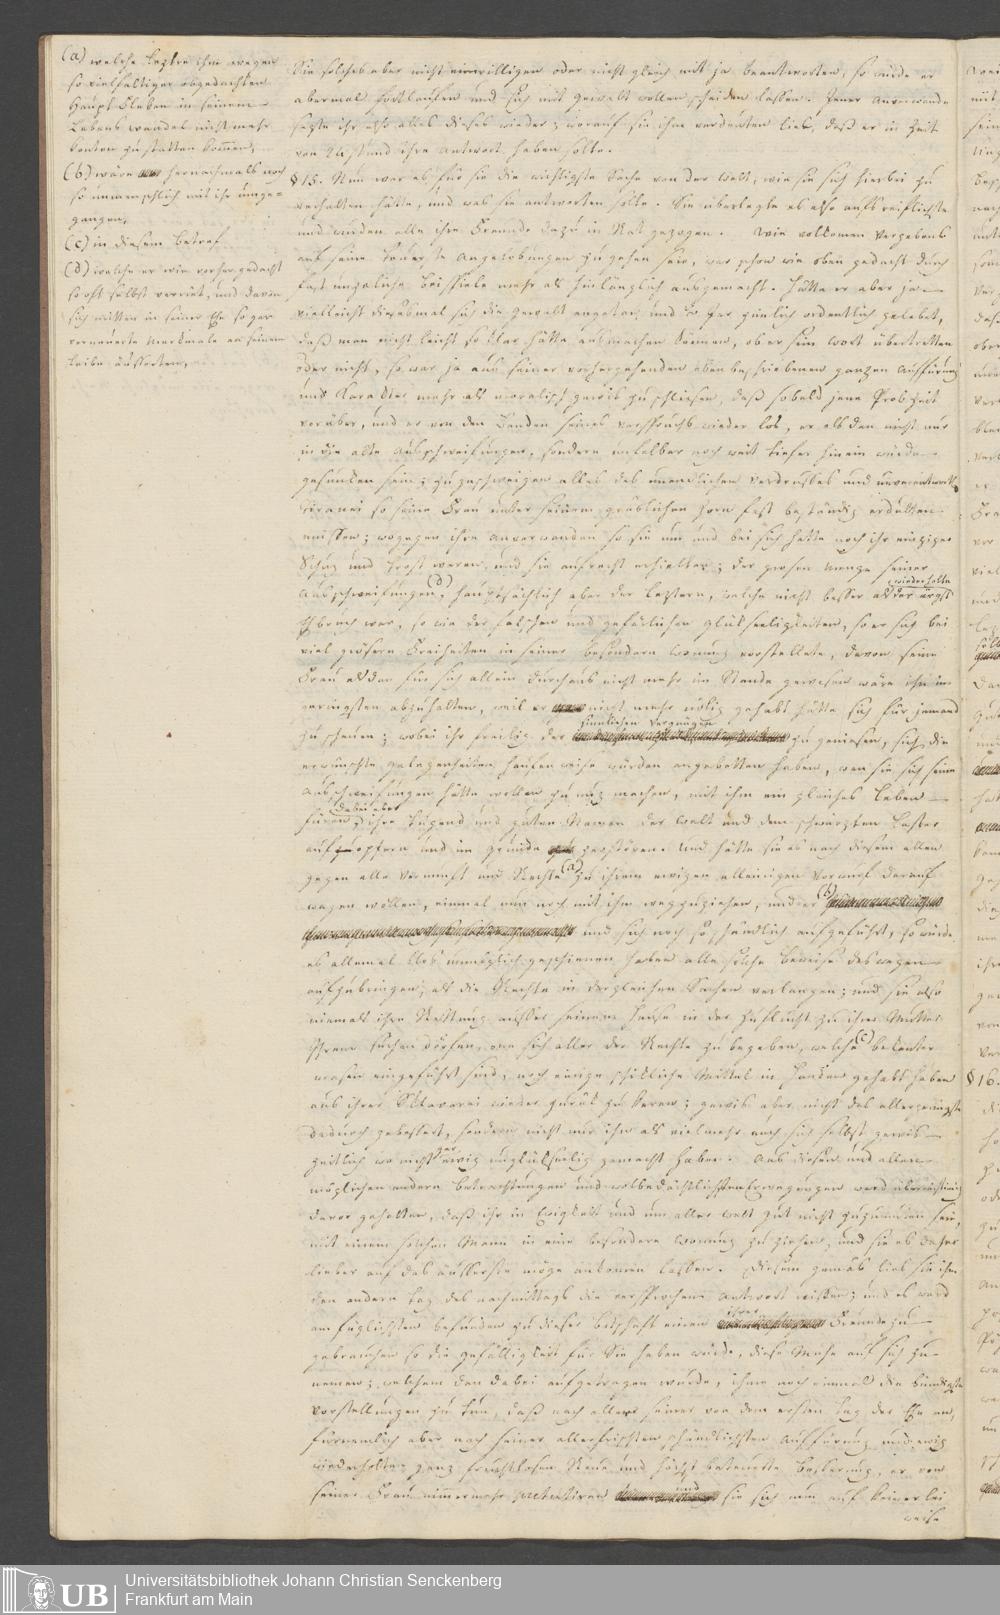 (a) welche leztre ihm wegen
so vielfaltiger obgedachten
Haupt Sünden in seinem
Lebens wandel nicht mehr
konten zu statten kommen,
(b) wäre hernachmals noch
so unmenschlich mit ihr umge-
gangen,
(c) in diesem betref
(d) welche er wie vorher gedacht
so oft selbst verriet, und davon
sich mitten in seiner Ehe sogar
erneuerte Merkmale an seinem
Leibe äusserten,
Sie solches aber nicht einwilligen oder nicht gleich mit ja beantworten, so würde er
abermal fortlaufen und sich mit gewalt wollen scheiden lassen. Jener Anverwande
sagte ihr also alles dieses wieder; worauf sie ihm vermelden lies, daß er in Zeit
von 24 stund ihre antwort haben solte.
§ 15. Nun war es für sie die wichtigste Sache von der Welt, wie sie sich hierbei zu
verhalten hätte, und was sie antworten solte. Sie überlegte es also aufs reiflichste
und wurden alle ihre Freunde dazu in Rat gezogen. Wie volkomen vergebens
auf seine teuerste Angelobungen zu gehen sei, war schon wie oben gedacht durch
fast unzaliche Beispiele mehr als hinlänglich ausgemacht. Hätte er aber ja
vielleicht diesesmal sich die gewalt angetan, und so gar zimlich ordentlich gelebet,
daß man nicht leicht so klar hätte ausmachen können, ob er sein wort übertretten
oder nicht, so war ja aus seiner vorhergehenden oben beschriebenen ganzen Auffürung
und Karackter mehr als moralisch gewis zu schliesen, daß sobald jene Probzeit
vorüber, und er von den Banden seines versprechs wieder los, er als dan nicht nur
in die alte ausschweifungen, sondern unfelbar noch weit tiefer hinein würde
gesunken sein; zu geschweigen alles des unendlichen Verdrusses und
so seine Frau unter seinem greulichen Zorn fast beständig erdulten
müssen; wogegen ihre Anverwanden so sie um und bei sich hatte noch ihr einziger
Schuz und trost waren, und sie aufrecht erhielten; der grosen menge seiner
Ausschweifungen, (d) hauptsächlich aber der leztern, welche nicht besser als der ärgste wiederholte
Ehbruch war, so wie der falschen und gefärlichen glükseeligkeiten, so er sich bei
viel grösern Freiheiten in seiner besondern wonung vorstellete, davon seine
Frau alsdan für sich allein durchaus nicht mehr im Stande gewesen wäre ihn im
geringsten abzuhalten, weil er nicht mehr nötig gehabt hätte sich für jemand
zu scheuen; wobei ihr freilig der sinnlichen Vergnügen zu geniesen, sich die
erwünschte gelegenheiten haufenweise würden angebotten haben, wan sie sich seine
Ausschweifungen hätte wollen zu nuz machen, mit ihm ein gleiches Leben
füren, dabei aber ihre tugend und guten Namen der Welt und dem schwarzten Laster
aufzuopfern und im grunde zerstören. Und hätte sie es nach diesem allen
gegen alle Vernunft und Rechte (a) zu ihrem ewigen alleinigen Vorwurf darauf
wagen wollen, einmal nur noch mit ihm wegzuziehen, und er (b)
und sich noch so schändlich aufgeführt, so würde
es allemal blos unmöglich geschienen haben alle solche beweise deswegen
aufzubringen, als die Rechte in dergleichen Sachen verlangen; und sie also
niemals ihre Rettung ausser seinem Hause in der Zuflucht zu ihrer Mutter
suchen dörfen, one sich aller der Rechte zu begeben, welche (c) bekanter
masen eingeführt sind, noch einige schikliche Mittel in Händen gehabt haben
aus ihrer Sklaverei wieder zurük zu keren; gewis aber nicht das allergeringste
dadurch gebessert, sondern nicht nur ihn als vielmehr auch sich selbst gewis
zeitlich wo nicht gar ewig unglükselig gemacht haben. Aus diesen und allen
möglichen andern betrachtungen und wolbedächtlichsten Erwegungen ward übereinstimig
davor gehalten, daß ihr in Ewigkeit und um aller welt gut nicht zuzumuten sei,
mit einem solchen Mann in eine besondere wonung zu ziehen, und sie es daher
lieber auf das äusserste möge ankomen lassen. Diesem gemäs lies sie ihm
den andern tag des nachmittags die versprochene antwort wissen; und es ward
am füglichsten befunden zu dieser botschaft einen ihrer Freunde zu
gebrauchen so die gefälligkeit für Sie haben würde, diese Mühe auf sich zu
nemen; welchem den dabei aufgetragen wurde, ihme noch einmal die bündigste
vorstellungen zu tun, daß nach allem seiner von dem ersten tag der Ehe an,
fürnemlich aber nach seiner allerfrischten schändlichsten Auffürung, und ewig
wiederholten ganz fruchtlosen Reue und höchst beteuerte besserung, er von
seiner Frau nimermehr und sie sich nun auf keinerlei
weise
§ 16.
Universitätsbibliothek Johann Christian Senckenberg
Frankfurt am Main
UB